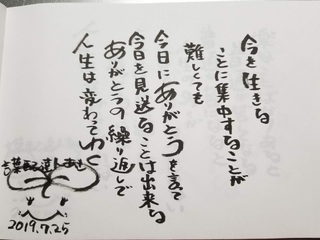 今を生きる
ことに集中することが
難しくても
今日にありがとうを言って
今日を見送ることは出来る
ありがとうの繰り返しで
人生は変わってゆく
2019.7.25